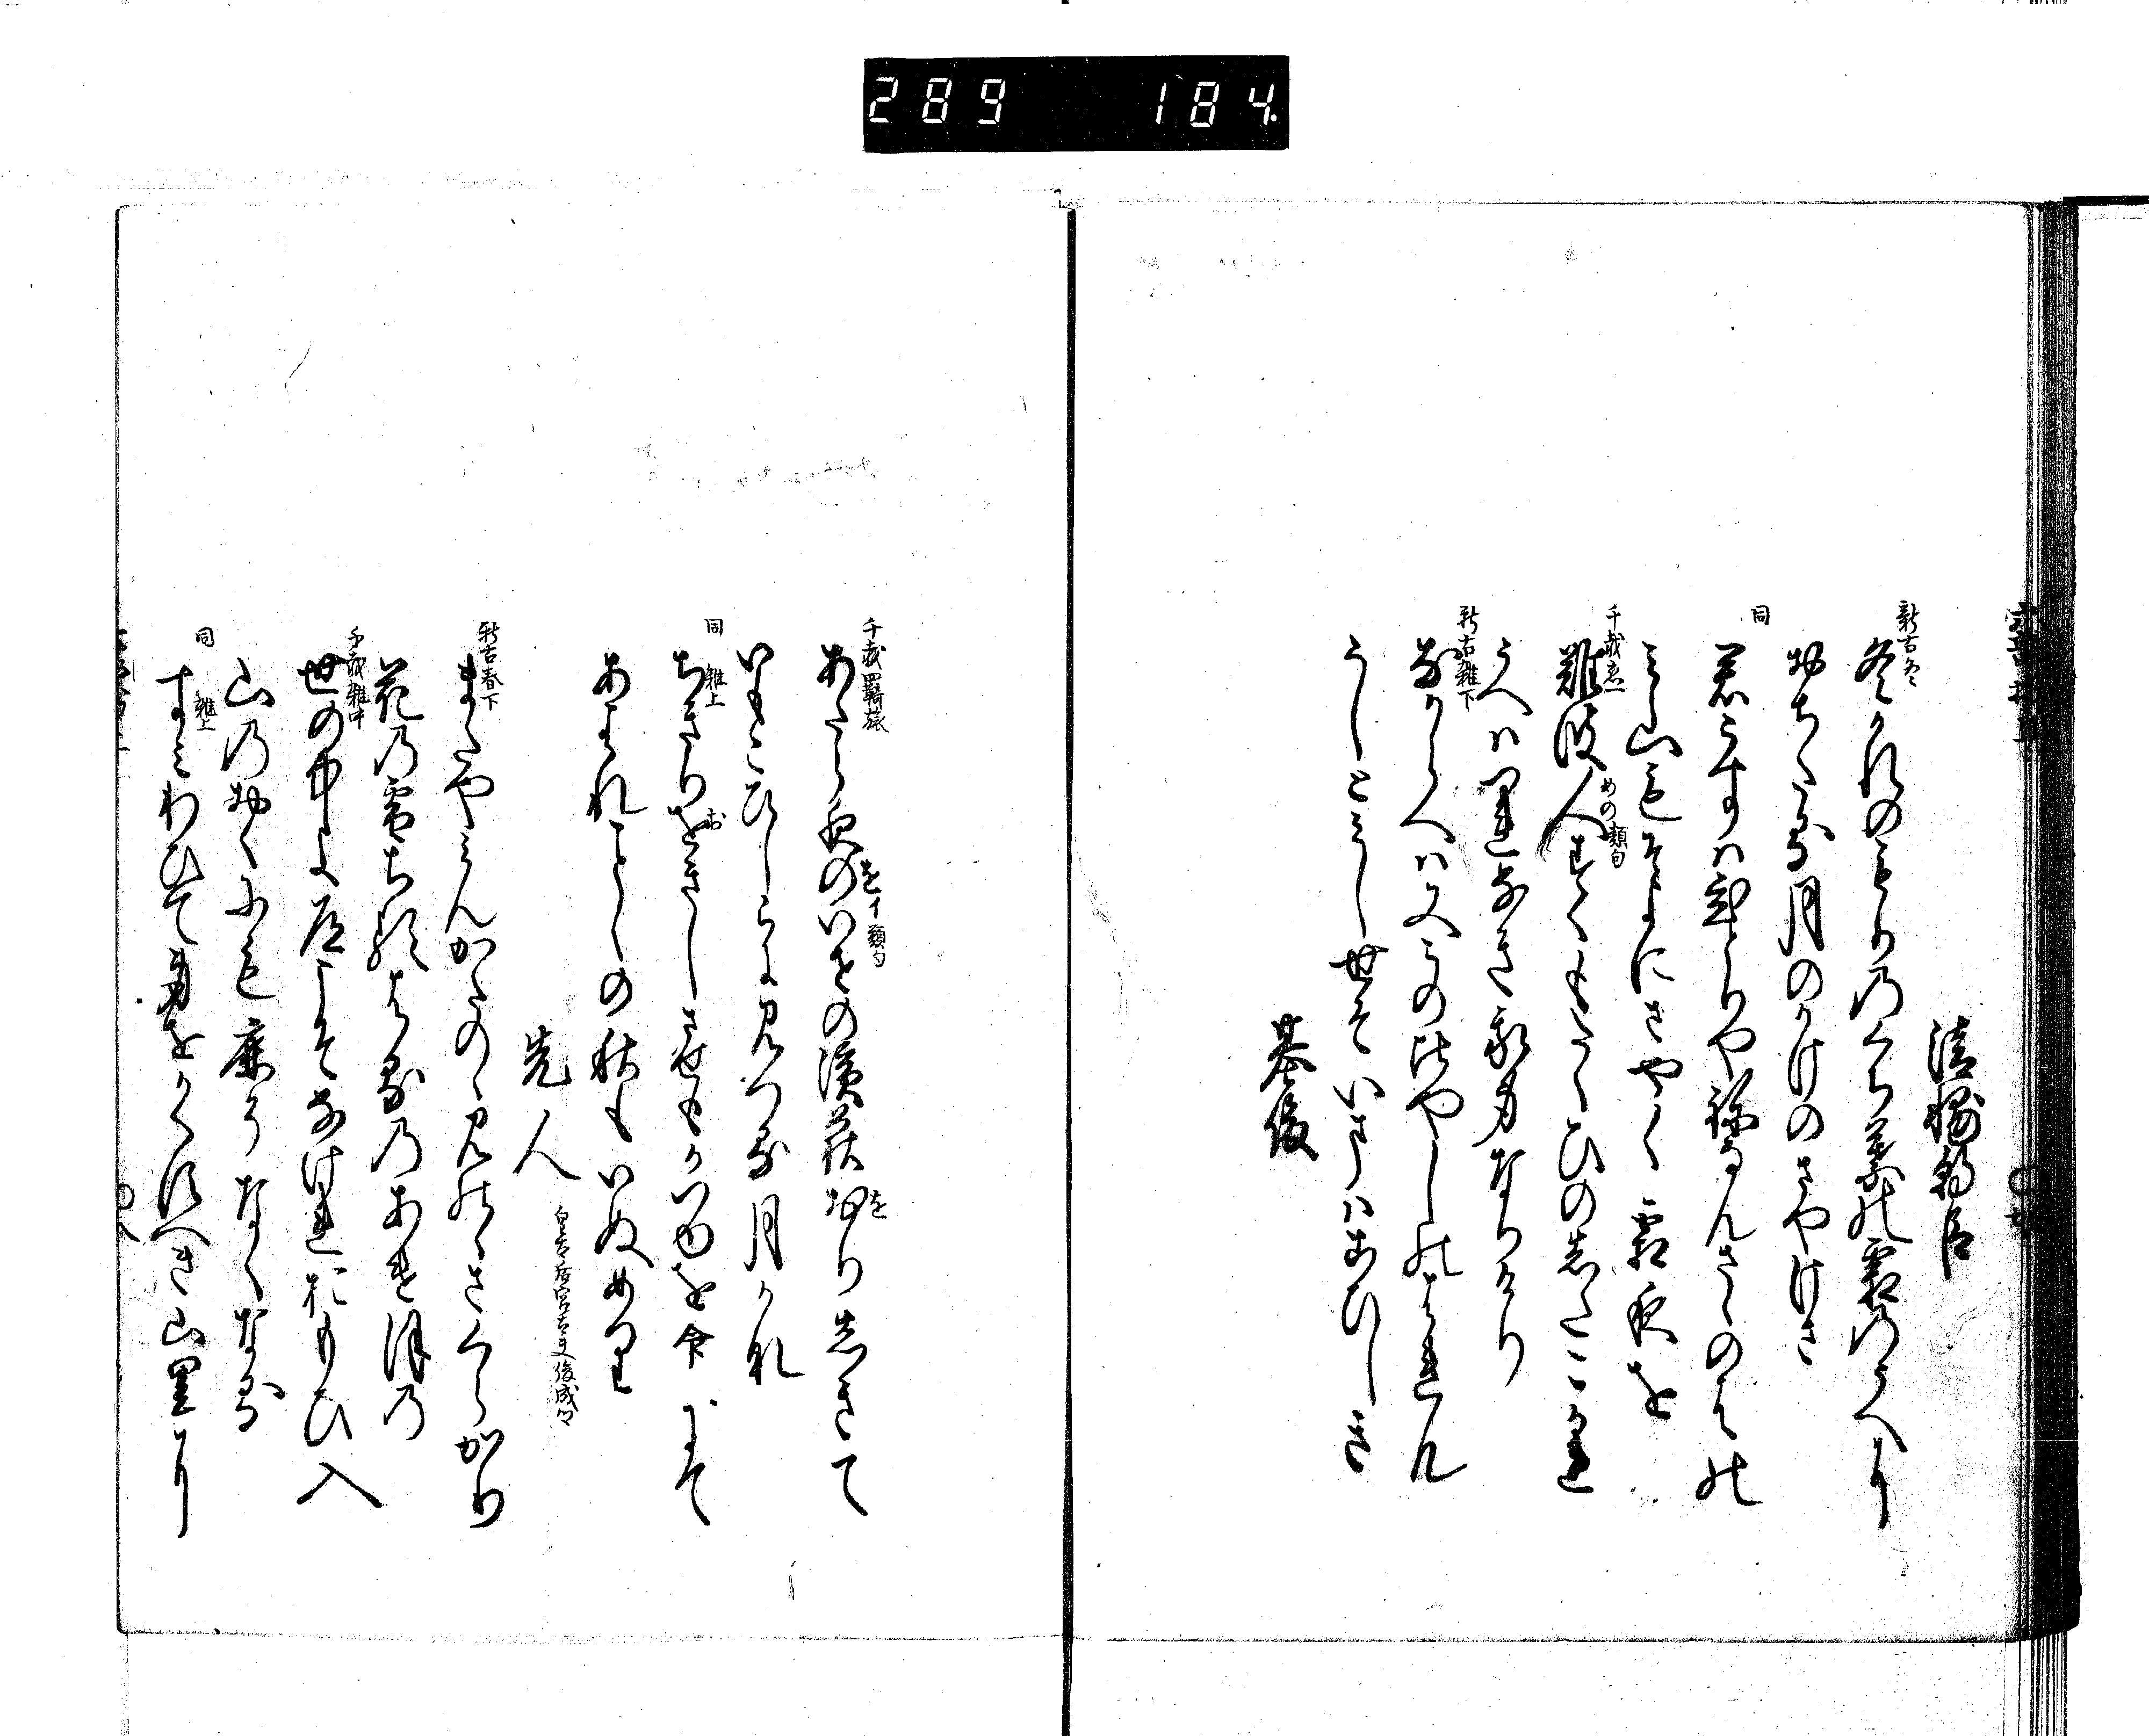 289 184
清輔朝臣
新古冬
冬かれのもりのくち葉の霜のうへに
おちたる月のかけのさやけさ
同
君こすはひとりやねなんさゝのはの
み山もそよにさやく霜夜を
千載恋一
難波人すくもたくひのしたこかれ
めの類句
うへはつれなき我身なりけり
新古雑下
なからへは又この比やしのはれん
うしとみし世そいまはこひしき
基俊
千載羇旅
あたら夜のいせの濱荻おりしきて
を イ類句
を
いもこひしらに見つる月かな
同 雑上
ちきりをきしさせもかつゆを命にて
お
あはれことしの秋もいぬめり
先人 皇太后宮大夫俊成卿
新古春下
またやみんかたのゝ見のゝさくらかり
花の雪ちるはるのあけほの
千載雑中
世の中よ道こそなけれおもひ入
山のおくにも鹿そなくなる
同 雑上
すみわひて身をかくすへき山里に